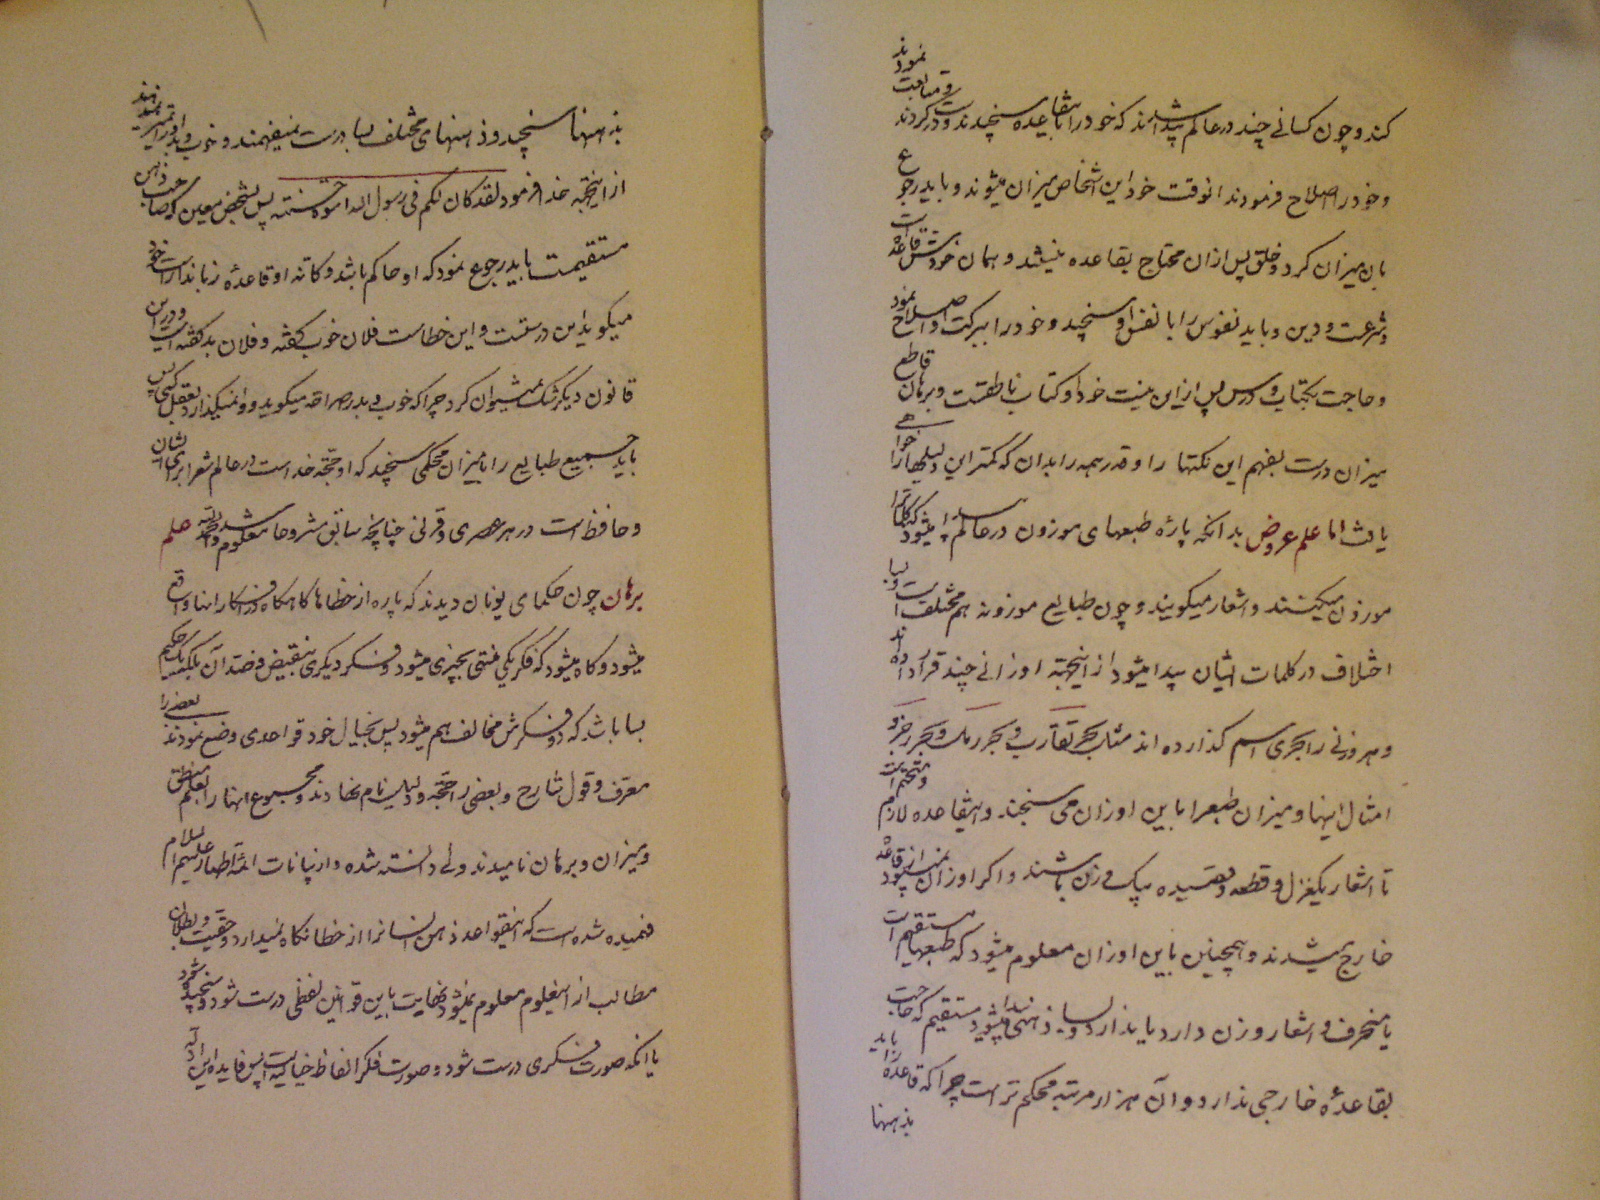 کند و چون کسانی چند در عالم پیدا شدند که خود را باینقاعده سنجیدند و درست کردند و متابعت نمودند
و خود را اصلاح فرمودند انوقت خود این اشخاص میزان میشوند و باید رجوع
بان میزان کرد و خلق پس ازان محتاج بقاعده نیستند و همان خودش قاعده است
و شرعست و دین و باید نفوس را با نفس او سنجید و خود را ببرکت او اصلاح نمود
و حاجت بکتاب و درس پس از این نیست خود او کتاب ناطقست و برهان قاطع
میزان درست بفهم این نکتها را و قدر همه را بدان که کمتر این دلیلها را خواهی
یافت اما علم عروض بدانکه پارهٔ طبعهای موزون در عالم پیدا میشود که کلام را
موزون میکنند و اشعار میکویند و چون طبایع موزونه هم مختلف است و بسا
اختلاف در کلمات ایشان پیدا میشود از اینجهة اوزانی چند قرار داده اند
و هر وزنی را بحری اسم کذارده اند مثل بحر تقارب و بحر رمل و بحر رجز و
امثال اینها و میزان طبع را باین اوزان می سنجند و اینقاعده لازم و متحتم است
تا اشعار یکغزل و قطعه و قصیده بیک وزن باشند و اکر اوزان نمیبود از قاعده
خارج میشدند و همچنین باین اوزان معلوم میشود که طبعها مستقیم است
یا منحرف و اشعار وزن دارد یا ندارد و بسا ذهنی پیدا میشود مستقیم که حاجت
بقاعدهٔ خارجی ندارد و آن هزار مرتبه محکم تر است چرا که قاعده را باید
بذهنها
بذهنها سنجید و ذهنهای مختلف بسا درست نمیفهمند و خوب و بد را تمیز نمیدهند
از اینجهة خدا فرمود لقد کان لکم فی رسول الله اسوة حسنة پس بشخص معین که صاحب ذهن
مستقیمست باید رجوع نمود که او حاکم باشد و کانه او قاعدهٔ زباندار است خود
میکوید این درستست و این خطاست فلان خوب کفته و فلان بد کفته است و در این
قانون دیکر شک نمیتوان کرد چرا که خوب و بد را بصراحة میکوید و وانمیکذارد بعقل کسی پس
باید جمیع طبایع را با میزان محکمی سنجید که او حجة خداست در عالم شعر برای ایشان
و حافظ است در هر عصری و قرنی چنانچه سابق مشروحا معلوم شد و الحمد لله علم
برهان چون حکمای یونان دیدند که پاره از خطاها کاهکاه در افکار انها واقع
میشود و کاه میشود که فکر یکی منتهی بچیزی میشود و فکر دیکری بنقیض و ضد آن بلکه یک حکیم
بسا باشد که دو فکرش مخالف هم میشود پس بخیال خود قواعدی وضع نمودند بعضی را
معرف و قول شارح و بعضی را حجة و دلیل نام نهادند و مجموع انها را بعلم منطق
و میزان و برهان نامیدند ولی دانسته شده و از بیانات ائمهٔ اطهار علیهم السلام
فهمیده شده است که اینقواعد ذهن انسانرا از خطا نکاه نمیدارد و حقیت و بطلان
مطالب از اینعلوم معلوم نمیشود نهایت باین قوانین لفظی درست شود و سنجیده شود
یا انکه صورت فکری درست شود و صورت فکر الفاظ خیالیه است پس فایده این ادله